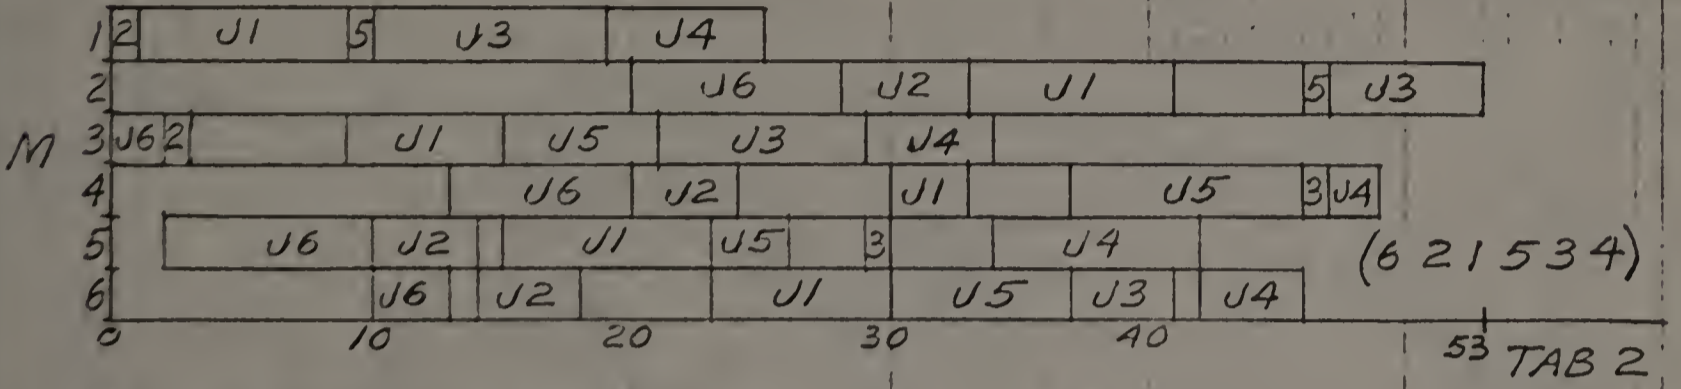 1 2 J1 5 J3 J4
2 J6 J2 J1 5 J3
M 3 J6 2 J1 J5 J3 J4
4 J6 J2 J1 J5 3 J4
5 J6 J2 J1 J5 3 J4
(6 2 1 5 3 4)
6 J6 J2 J1 J5 J3 J4
0 10 20 30 40 53 TAB 2